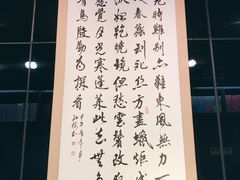 見時難別亦難東風無力
春蠶到死絲方盡蠟炬成
始乾曉鏡但愁雲鬢改
應覺月光寒蓬萊此去無
青鳥殷勤為探看